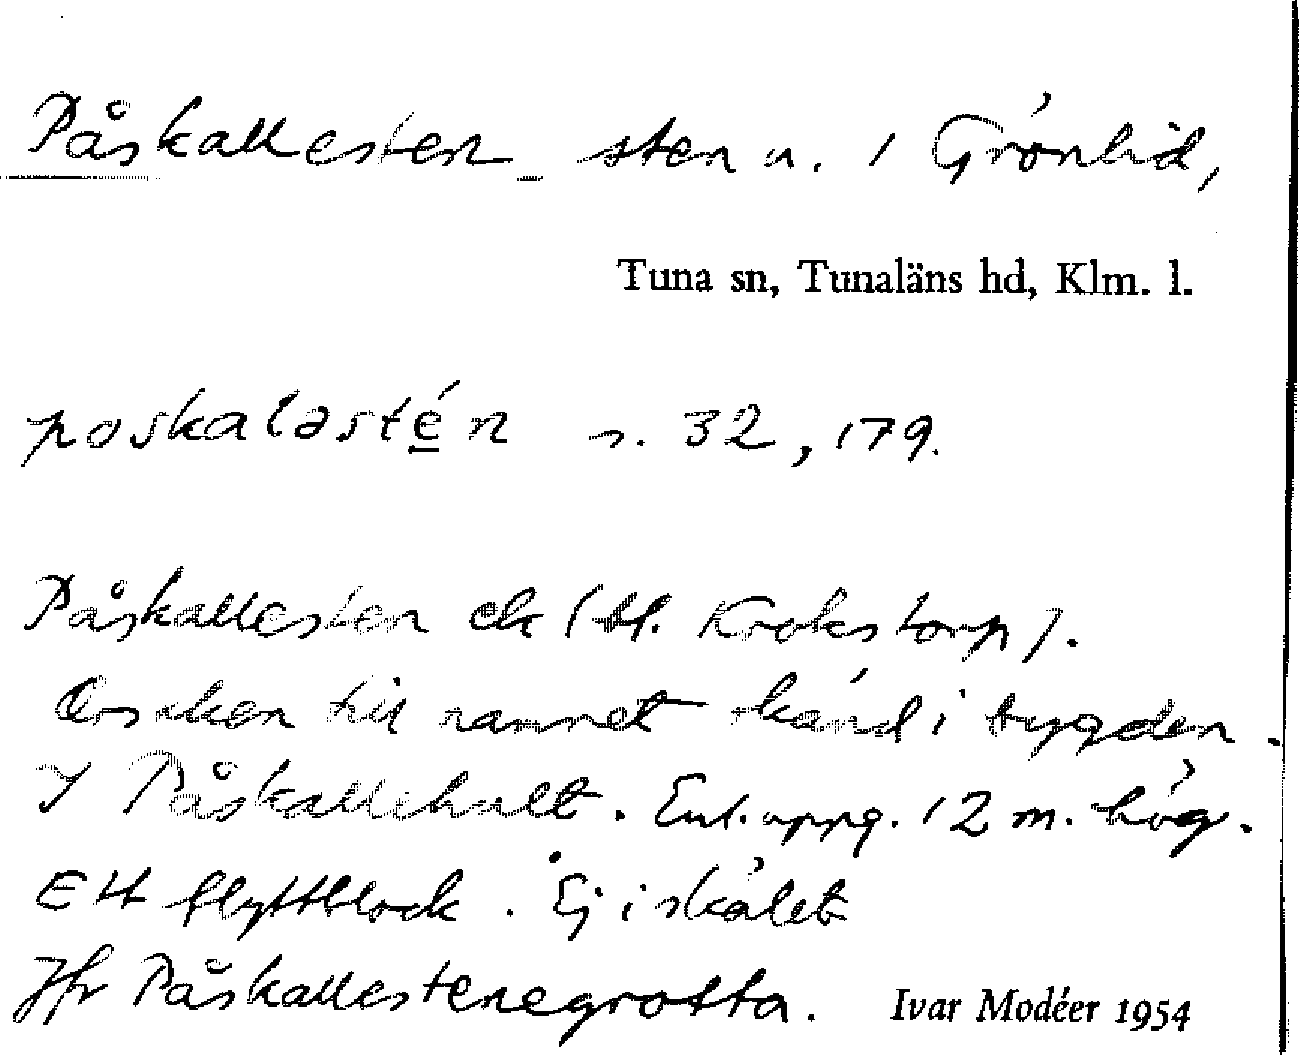 Påskallesten sten n. i Grönlid,
Tuna sn, Tunaläns hd, Klm. l.
poskaləstén s. 32, 179.
Påskallesten ek (bl. Krokstorp).
Orsaken till namnet okänd i bygden.
I Påskallehult. Enl. uppg. 12 m. hög.
Ett flyttblock. Ej i skålet
Jfr Påskallestenegrotta. Ivar Modéer 1954